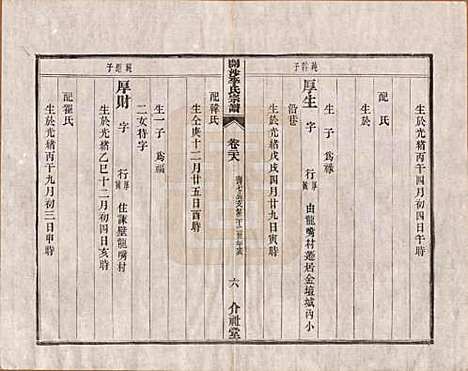 生於光緒丙午四月初四日午時
配　氏
生　子　爲祿
沿巷
生於光緒戊戌四月廿九日寅時
厚生　字　行厚　由龍嘴村遷居金壇城內小
純　子
開沙李氏宗譜　卷三六　六　介祉堂
生仝庚十二月廿五日酉時
配薛氏
生一子　爲福
二女待字
生於光緒乙巳十二月初四日亥時
厚財　字　行　住諫壁龍嘴村
純鉅子
配翟氏
生於光緒丙午九月初三日申時